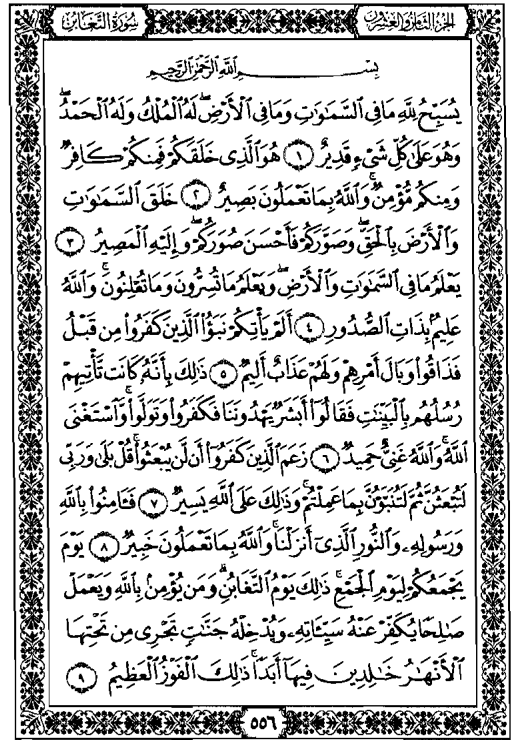 سُورَةُ التَّغَابُنِ
الجزء الثامن والعشرون
بِسْمِ ٱللَّهِ ٱلرَّحْمَٰنِ ٱلرَّحِيمِ
يُسَبِّحُ لِلَّهِ مَا فِى ٱلسَّمَٰوَٰتِ وَمَا فِى ٱلْأَرْضِ ۖ لَهُ ٱلْمُلْكُ وَلَهُ ٱلْحَمْدُ ۖ
وَهُوَ عَلَىٰ كُلِّ شَىْءٍ قَدِيرٌ ١ هُوَ ٱلَّذِى خَلَقَكُمْ فَمِنكُمْ كَافِرٌ
وَمِنكُم مُّؤْمِنٌ ۚ وَٱللَّهُ بِمَا تَعْمَلُونَ بَصِيرٌ ٢ خَلَقَ ٱلسَّمَٰوَٰتِ
وَٱلْأَرْضَ بِٱلْحَقِّ وَصَوَّرَكُمْ فَأَحْسَنَ صُوَرَكُمْ ۖ وَإِلَيْهِ ٱلْمَصِيرُ ٣
يَعْلَمُ مَا فِى ٱلسَّمَٰوَٰتِ وَٱلْأَرْضِ وَيَعْلَمُ مَا تُسِرُّونَ وَمَا تُعْلِنُونَ ۚ وَٱللَّهُ
عَلِيمٌۢ بِذَاتِ ٱلصُّدُورِ ٤ أَلَمْ يَأْتِكُمْ نَبَؤُا۟ ٱلَّذِينَ كَفَرُوا۟ مِن قَبْلُ
فَذَاقُوا۟ وَبَالَ أَمْرِهِمْ وَلَهُمْ عَذَابٌ أَلِيمٌ ٥ ذَٰلِكَ بِأَنَّهُۥ كَانَت تَّأْتِيهِمْ
رُسُلُهُم بِٱلْبَيِّنَٰتِ فَقَالُوٓا۟ أَبَشَرٌ يَهْدُونَنَا فَكَفَرُوا۟ وَتَوَلَّوا۟ ۚ وَّٱسْتَغْنَى
ٱللَّهُ ۚ وَٱللَّهُ غَنِىٌّ حَمِيدٌ ٦ زَعَمَ ٱلَّذِينَ كَفَرُوٓا۟ أَن لَّن يُبْعَثُوا۟ ۚ قُلْ بَلَىٰ وَرَبِّى
لَتُبْعَثُنَّ ثُمَّ لَتُنَبَّؤُنَّ بِمَا عَمِلْتُمْ ۚ وَذَٰلِكَ عَلَى ٱللَّهِ يَسِيرٌ ٧ فَـَٔامِنُوا۟ بِٱللَّهِ
وَرَسُولِهِۦ وَٱلنُّورِ ٱلَّذِىٓ أَنزَلْنَا ۚ وَٱللَّهُ بِمَا تَعْمَلُونَ خَبِيرٌ ٨ يَوْمَ
يَجْمَعُكُمْ لِيَوْمِ ٱلْجَمْعِ ۖ ذَٰلِكَ يَوْمُ ٱلتَّغَابُنِ ۗ وَمَن يُؤْمِنۢ بِٱللَّهِ وَيَعْمَلْ
صَٰلِحًا يُكَفِّرْ عَنْهُ سَيِّـَٔاتِهِۦ وَيُدْخِلْهُ جَنَّٰتٍ تَجْرِى مِن تَحْتِهَا
ٱلْأَنْهَٰرُ خَٰلِدِينَ فِيهَآ أَبَدًا ۚ ذَٰلِكَ ٱلْفَوْزُ ٱلْعَظِيمُ ٩
٥٥٦